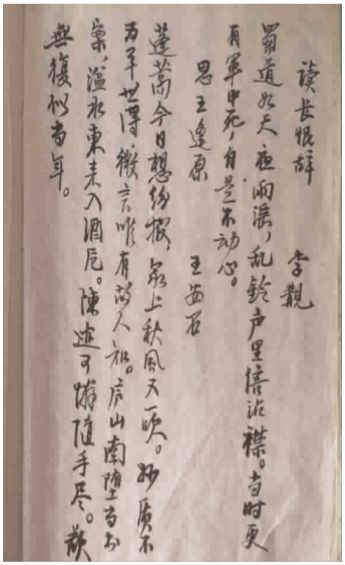 读长恨辞 李觏
蜀道如天夜雨淫，乱铃声里倍沾襟。当时更
有军中死，自是不动心。
思王逢原 王安石
蓬蒿今日想纷披，冢上秋风又一吹。妙质不
为平世得，微言唯有故人知。庐山南堕当书
案，湓水东来入酒卮。陈迹可怜随手尽。欲
無復似当年。